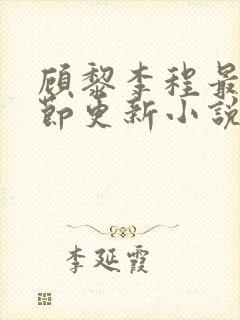 顾黎李程最
節更新小說
李延霞